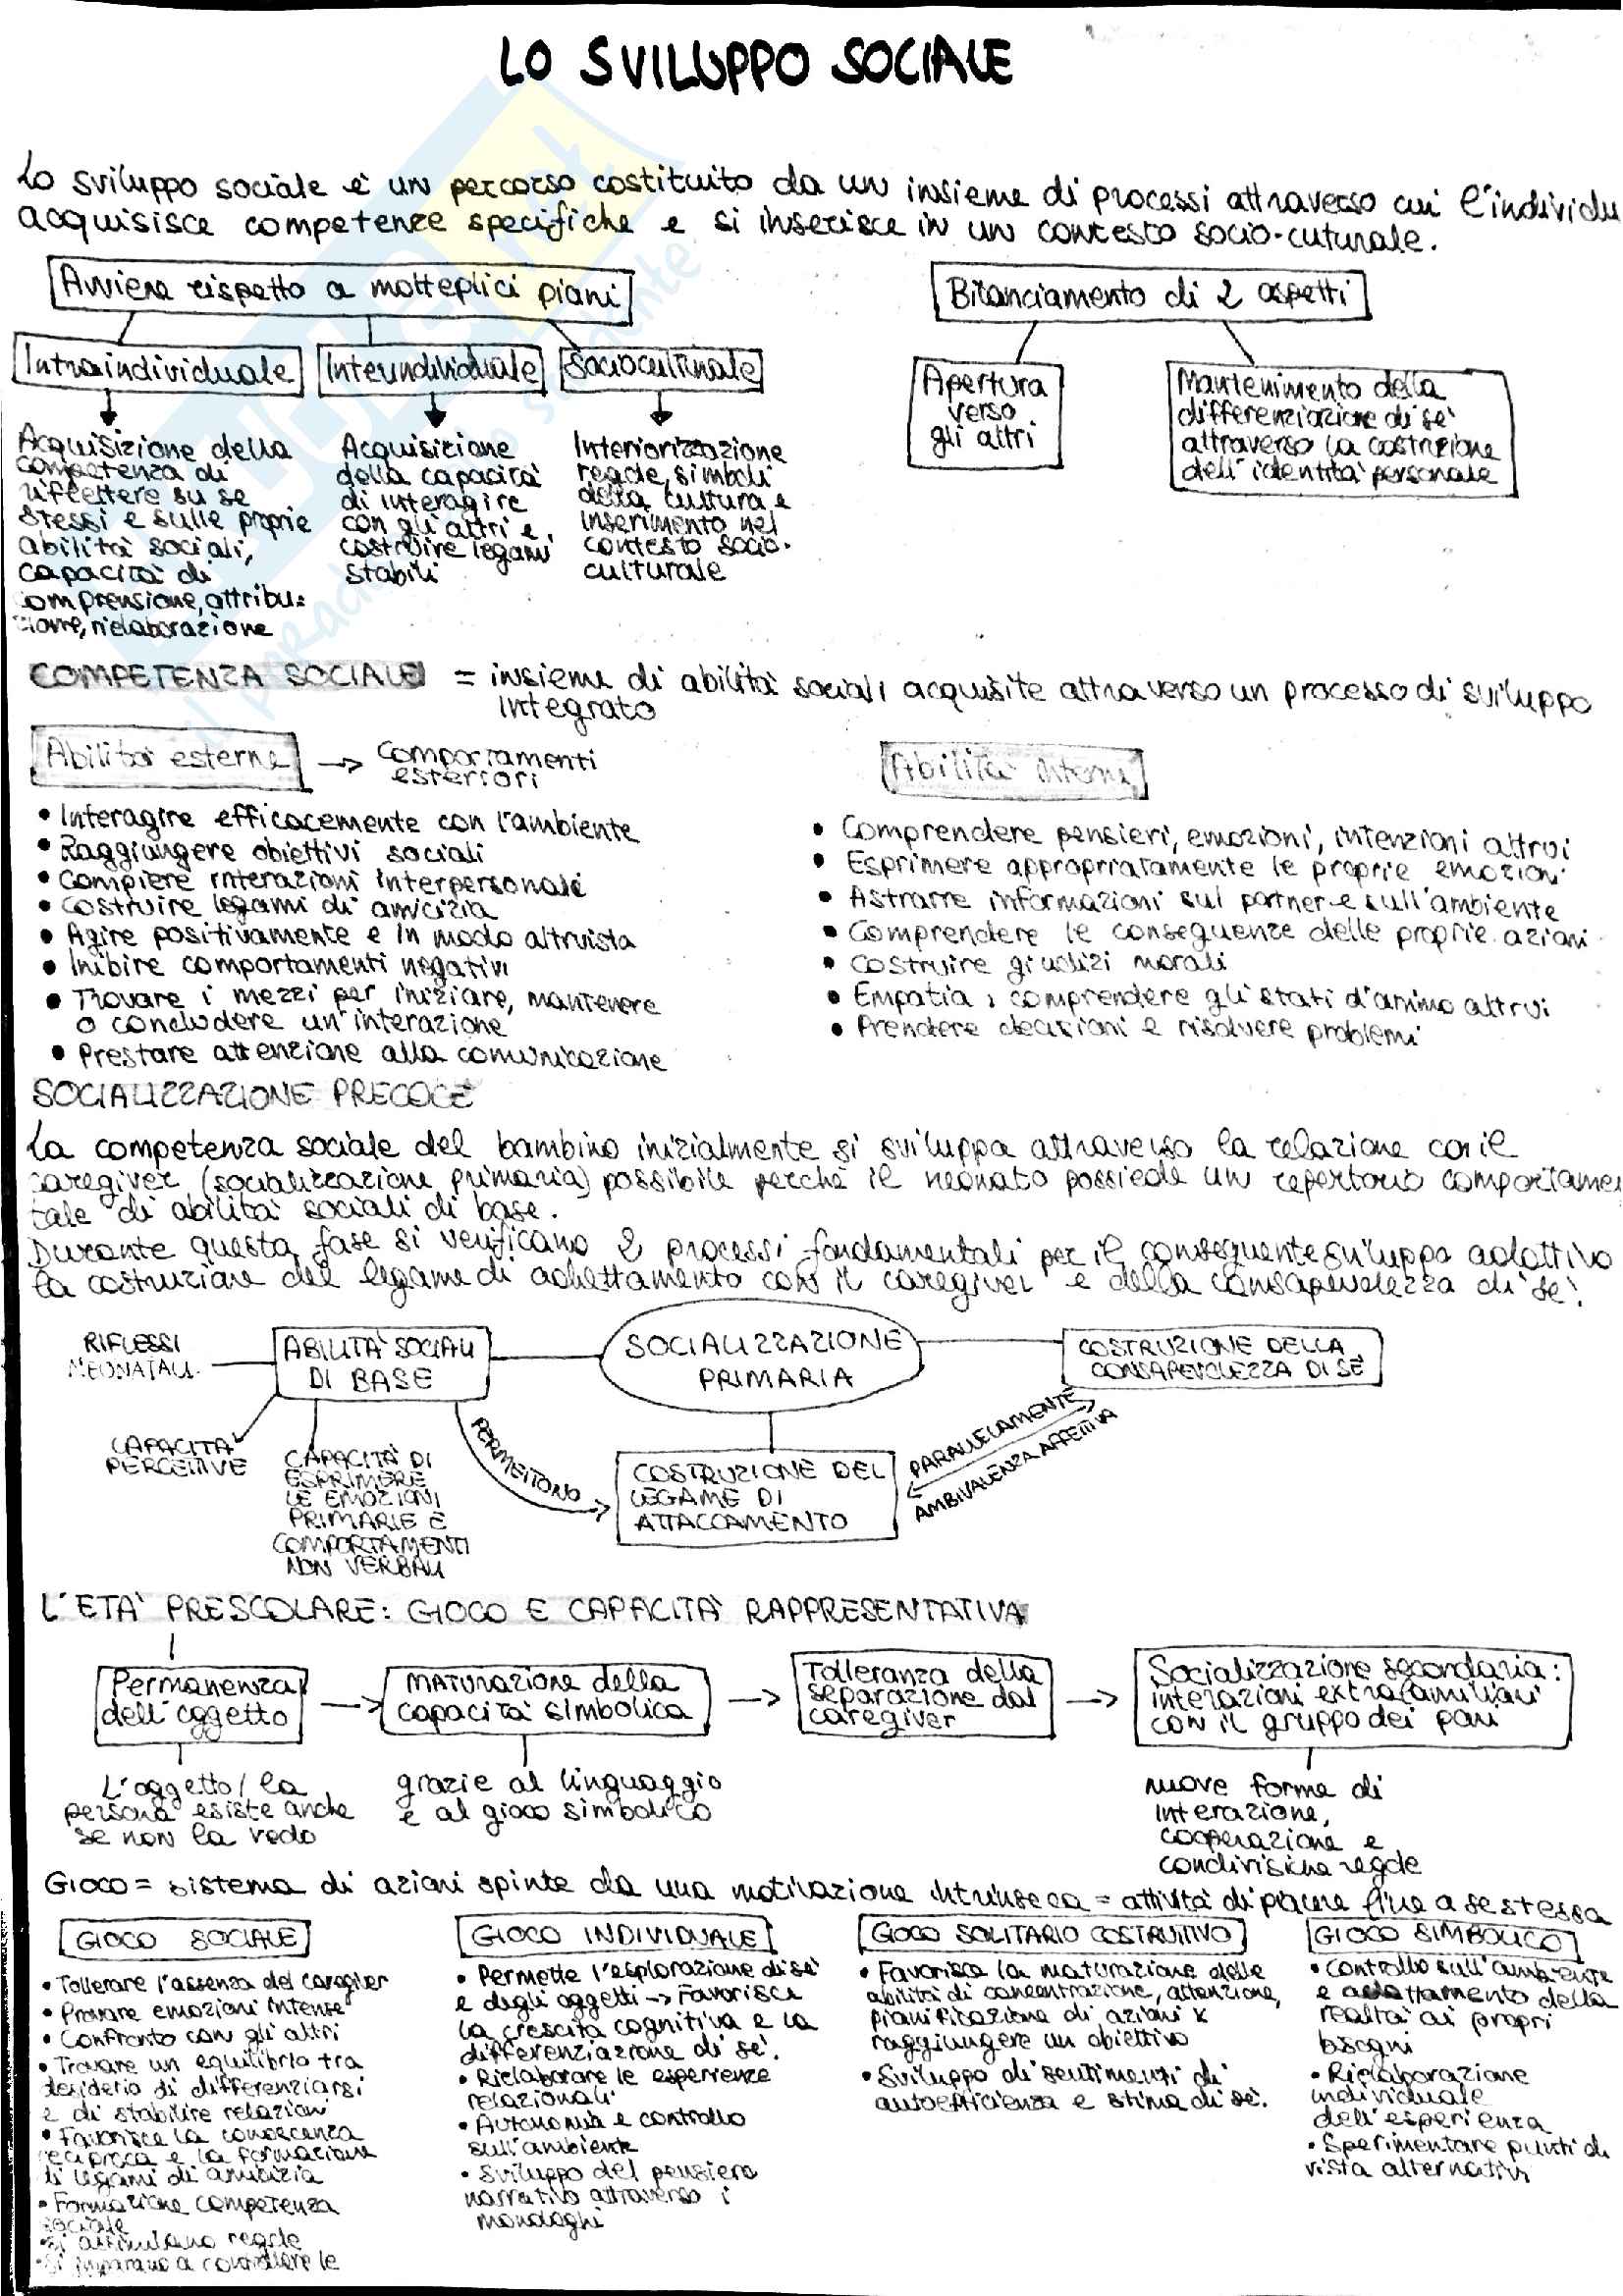 LO SVILUPPO SOCIALE
Lo sviluppo sociale è un percorso costituito da un insieme di processi attraverso cui l'individu
acquisisce competenze specifiche e si inserisce in un contesto socio-cuturale.
Avviene rispetto a molteplici piani
Bilanciamento di 2 aspetti
Intraindividuale
Interindividuale
Socioculturale
Apertura
verso
gli altri
Mantenimento della
differenziazione di sé
attraverso la costruzione
dell'identità personale
Acquisizione della
competenza di
riflettere su se
stessi e sulle proprie
abilità sociali,
capacità di
comprensione, attribu-
zione, rielaborazione
Acquisizione
della capacità
di interagire
con gli altri e
costruire legami
stabili
Interiorizzazione
regole, simboli
della cultura e
inserimento nel
contesto socio-
culturale
COMPETENZA SOCIALE = insieme di abilità sociali acquisite attraverso un processo di sviluppo
integrato
Abilità esterne → Comportamenti
esteriori
• Interagire efficacemente con l'ambiente
• Raggiungere obiettivi sociali
• Compiere interazioni interpersonali
• Costruire legami di amicizia
• Agire positivamente e in modo altruista
• Inibire comportamenti negativi
• Trovare i mezzi per iniziare, mantenere
o concludere un'interazione
• Prestare attenzione alla comunicazione
Abilità interne
• Comprendere pensieri, emozioni, intenzioni altrui
• Esprimere appropriatamente le proprie emozioni
• Astrarre informazioni sul partner e sull'ambiente
• Comprendere le conseguenze delle proprie azioni
• Costruire giudizi morali
• Empatia: comprendere gli stati d'animo altrui
• Prendere decisioni e risolvere problemi
SOCIALIZZAZIONE PRECOCE
La competenza sociale del bambino inizialmente si sviluppa attraverso la relazione con il
caregiver (socializzazione primaria) possibile perché il neonato possiede un repertorio comportamen
tale di abilità sociali di base.
Durante questa fase si verificano 2 processi fondamentali per il conseguente sviluppo adattivo
la costruzione del legame di adattamento con il caregiver e della consapevolezza di sé.
RIFLESSI
NEONATALI
ABILITÀ SOCIALI
DI BASE
SOCIALIZZAZIONE
PRIMARIA
COSTRUZIONE DELLA
CONSAPEVOLEZZA DI SÉ
CAPACITÀ
PERCETTIVE
CAPACITÀ DI
ESPRIMERE
LE EMOZIONI
PRIMARIE E
COMPORTAMENTI
NON VERBALI
PERMETTONO
COSTRUZIONE DEL
LEGAME DI
ATTACCAMENTO
PARALLELAMENTE
AMBIVALENZA AFFETTIVA
L'ETÀ PRESCOLARE: GIOCO E CAPACITÀ RAPPRESENTATIVA
Permanenza
dell'oggetto
MATURAZIONE della
capacità simbolica
Tolleranza della
separazione dal
caregiver
Socializzazione secondaria:
interazioni extrafamiliari
con il gruppo dei pari
L'oggetto/la
persona esiste anche
se non la vedo
grazie al linguaggio
e al gioco simbolico
nuove forme di
interazione,
cooperazione e
condivisione regole
GIOCO = sistema di azioni spinte da una motivazione intrinseca = attività di piacere fine a se stessa
GIOCO SOCIALE
• Tollerare l'assenza del caregiver
• Provare emozioni intense
• Confronto con gli altri
• Trovare un equilibrio tra
desiderio di differenziarsi
e di stabilire relazioni
• Favorisce la conoscenza
reciproca e la formazione
di legami di amicizia
• Formazione competenza
sociale
• Si assimilano regole
• Si imparano a controllare le
GIOCO INDIVIDUALE
• Permette l'esplorazione di sé
e degli oggetti → Favorisce
la crescita cognitiva e la
differenziazione di sé.
• Rielaborare le esperienze
relazionali
• Autonomia e controllo
sull'ambiente
• Sviluppo del pensiero
narrativo attraverso i
monologhi
GIOCO SOLITARIO COSTRUTTIVO
• Favorisce la maturazione delle
abilità di concentrazione, attenzione,
pianificazione di azioni x
raggiungere un obiettivo
• Sviluppo di sentimenti di
autoefficienza e stima di sé.
GIOCO SIMBOLICO
• Controllo sull'ambiente
e adattamento della
realtà ai propri
bisogni
• Rielaborazione
individuale
dell'esperienza
• Sperimentare punti di
vista alternativi